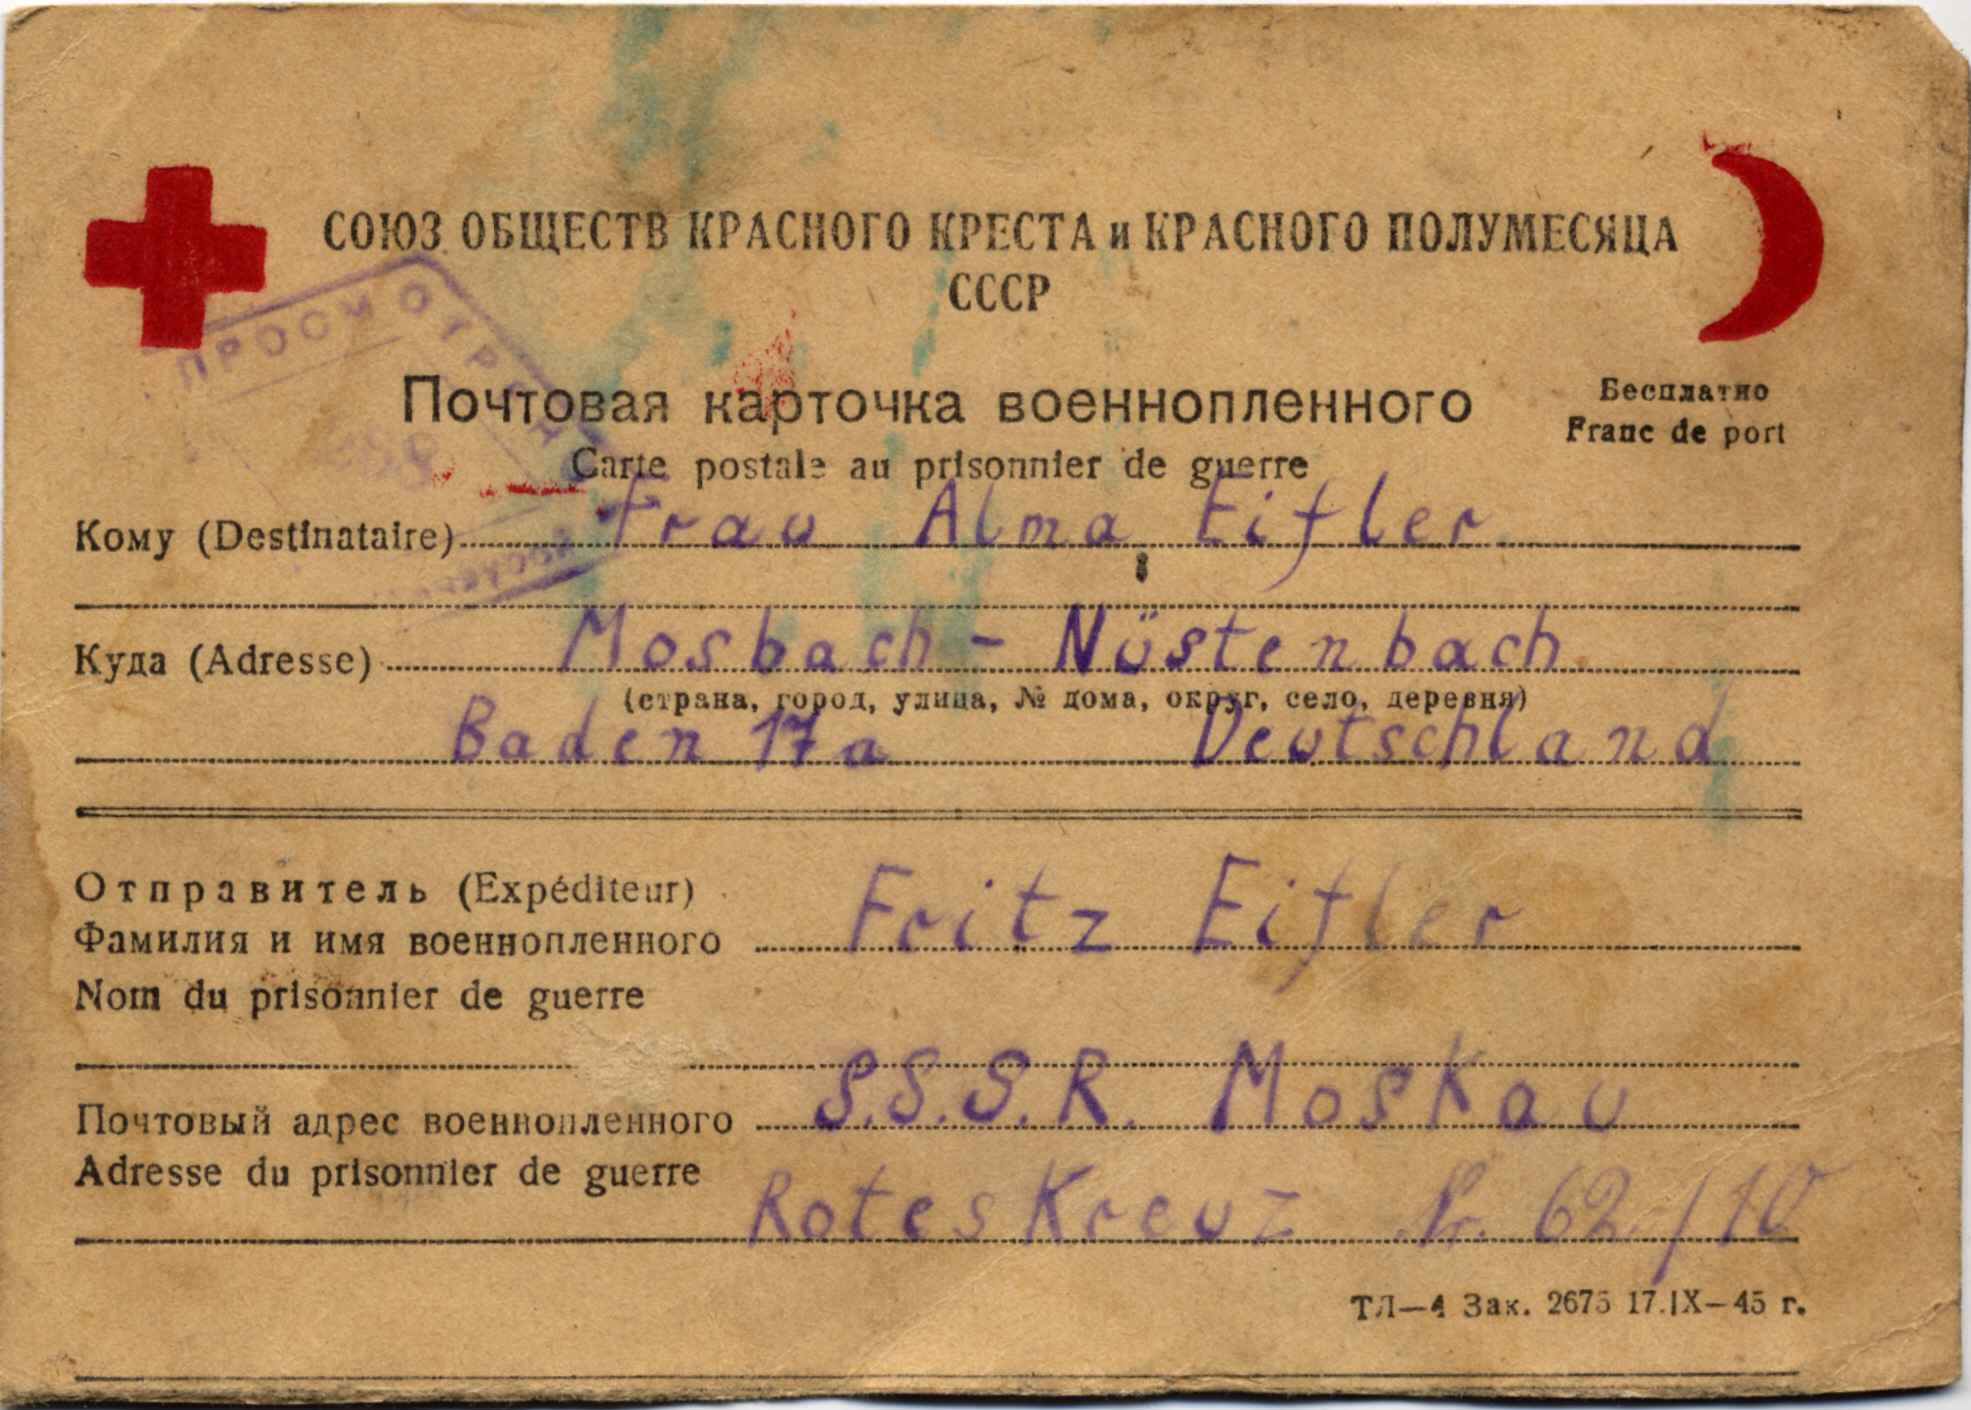 СОЮЗ ОБЩЕСТВ КРАСНОГО КРЕСТА и КРАСНОГО ПОЛУМЕСЯЦА
СССР
ПРОСМОТРЕНО
Почтовая карточка военнопленного
Бесплатно
Franc de port
Carte postale au prisonnier de guerre
Кому (Destinataire) Frau Alma Eifler
Куда (Adresse) Mosbach - Nüstenbach
(страна, город, улица, № дома, округ, село, деревня)
Baden 17a Deutschland
Отправитель (Expéditeur)
Фамилия и имя военнопленного Fritz Eifler
Nom du prisonnier de guerre
Почтовый адрес военнопленного S.S.S.R. Moskau
Adresse du prisonnier de guerre
Rotes Kreuz Nr. 62/10
ТЛ—4 Зак. 2675 17.IX—45 г.